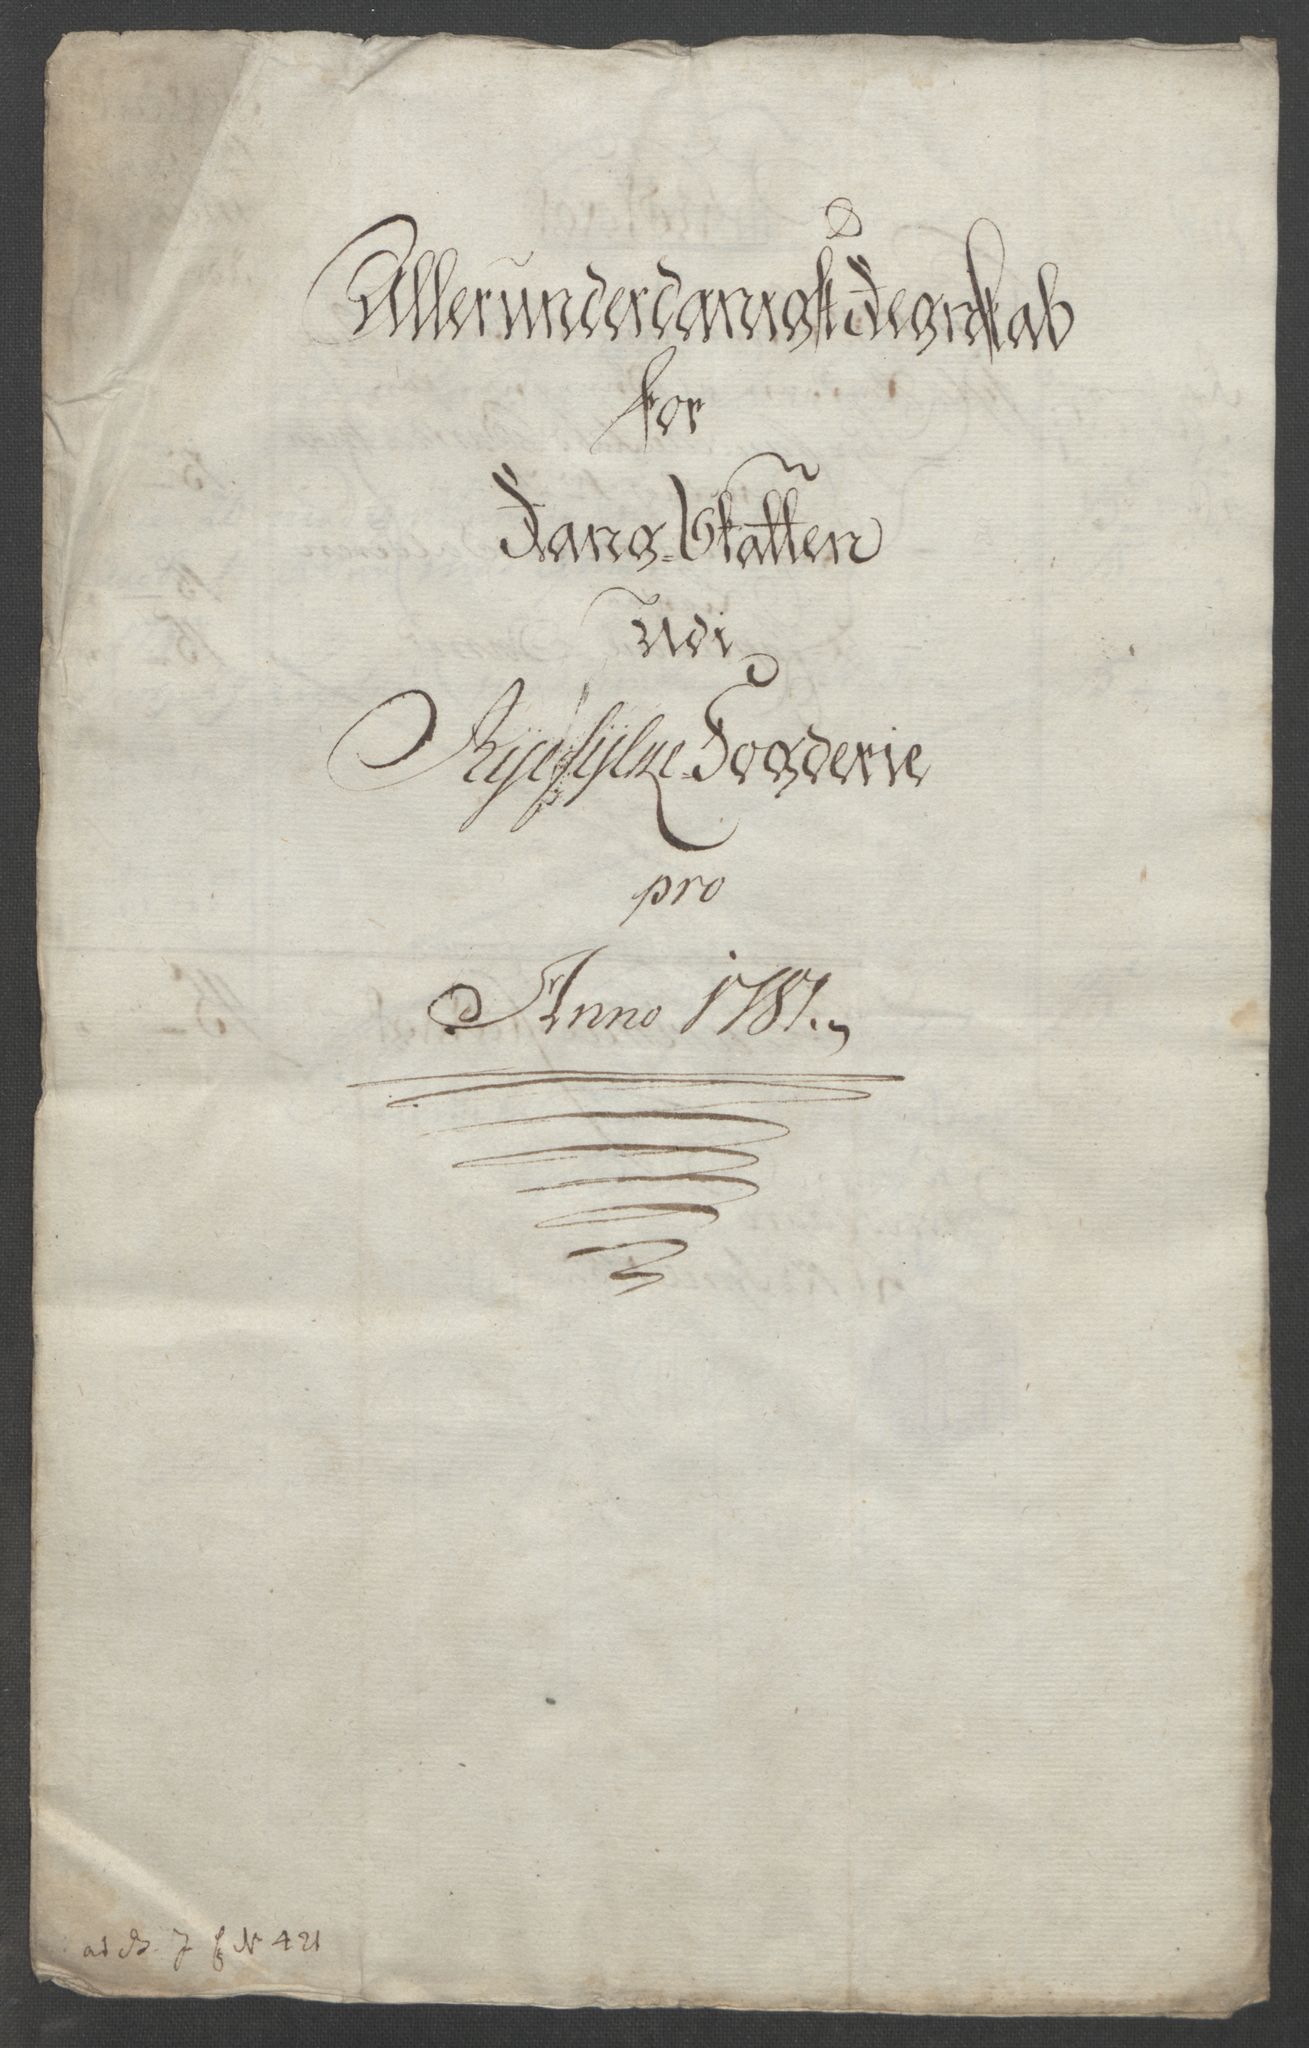 Allerunderdanigst Regnskab
for
Rang-Skatten
udi
Ryefylke Fogderie
pro
Anno 1781.
7 № 421